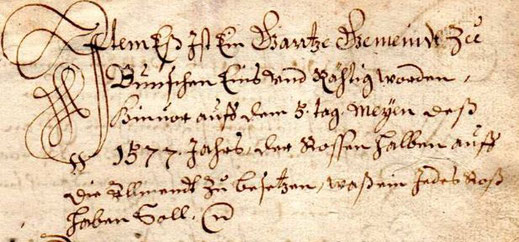 Item Eß Ist Ein Gantze Gemeindt Zu
Bünschen Eins vnd Rähtig worden,
hinuor auff dem 5. tag. Meÿen deß
1577. Jahrs, der Rossen halben auff
die Allmendt Zu besetzen, waß ein Jedes Roß
haben Soll.